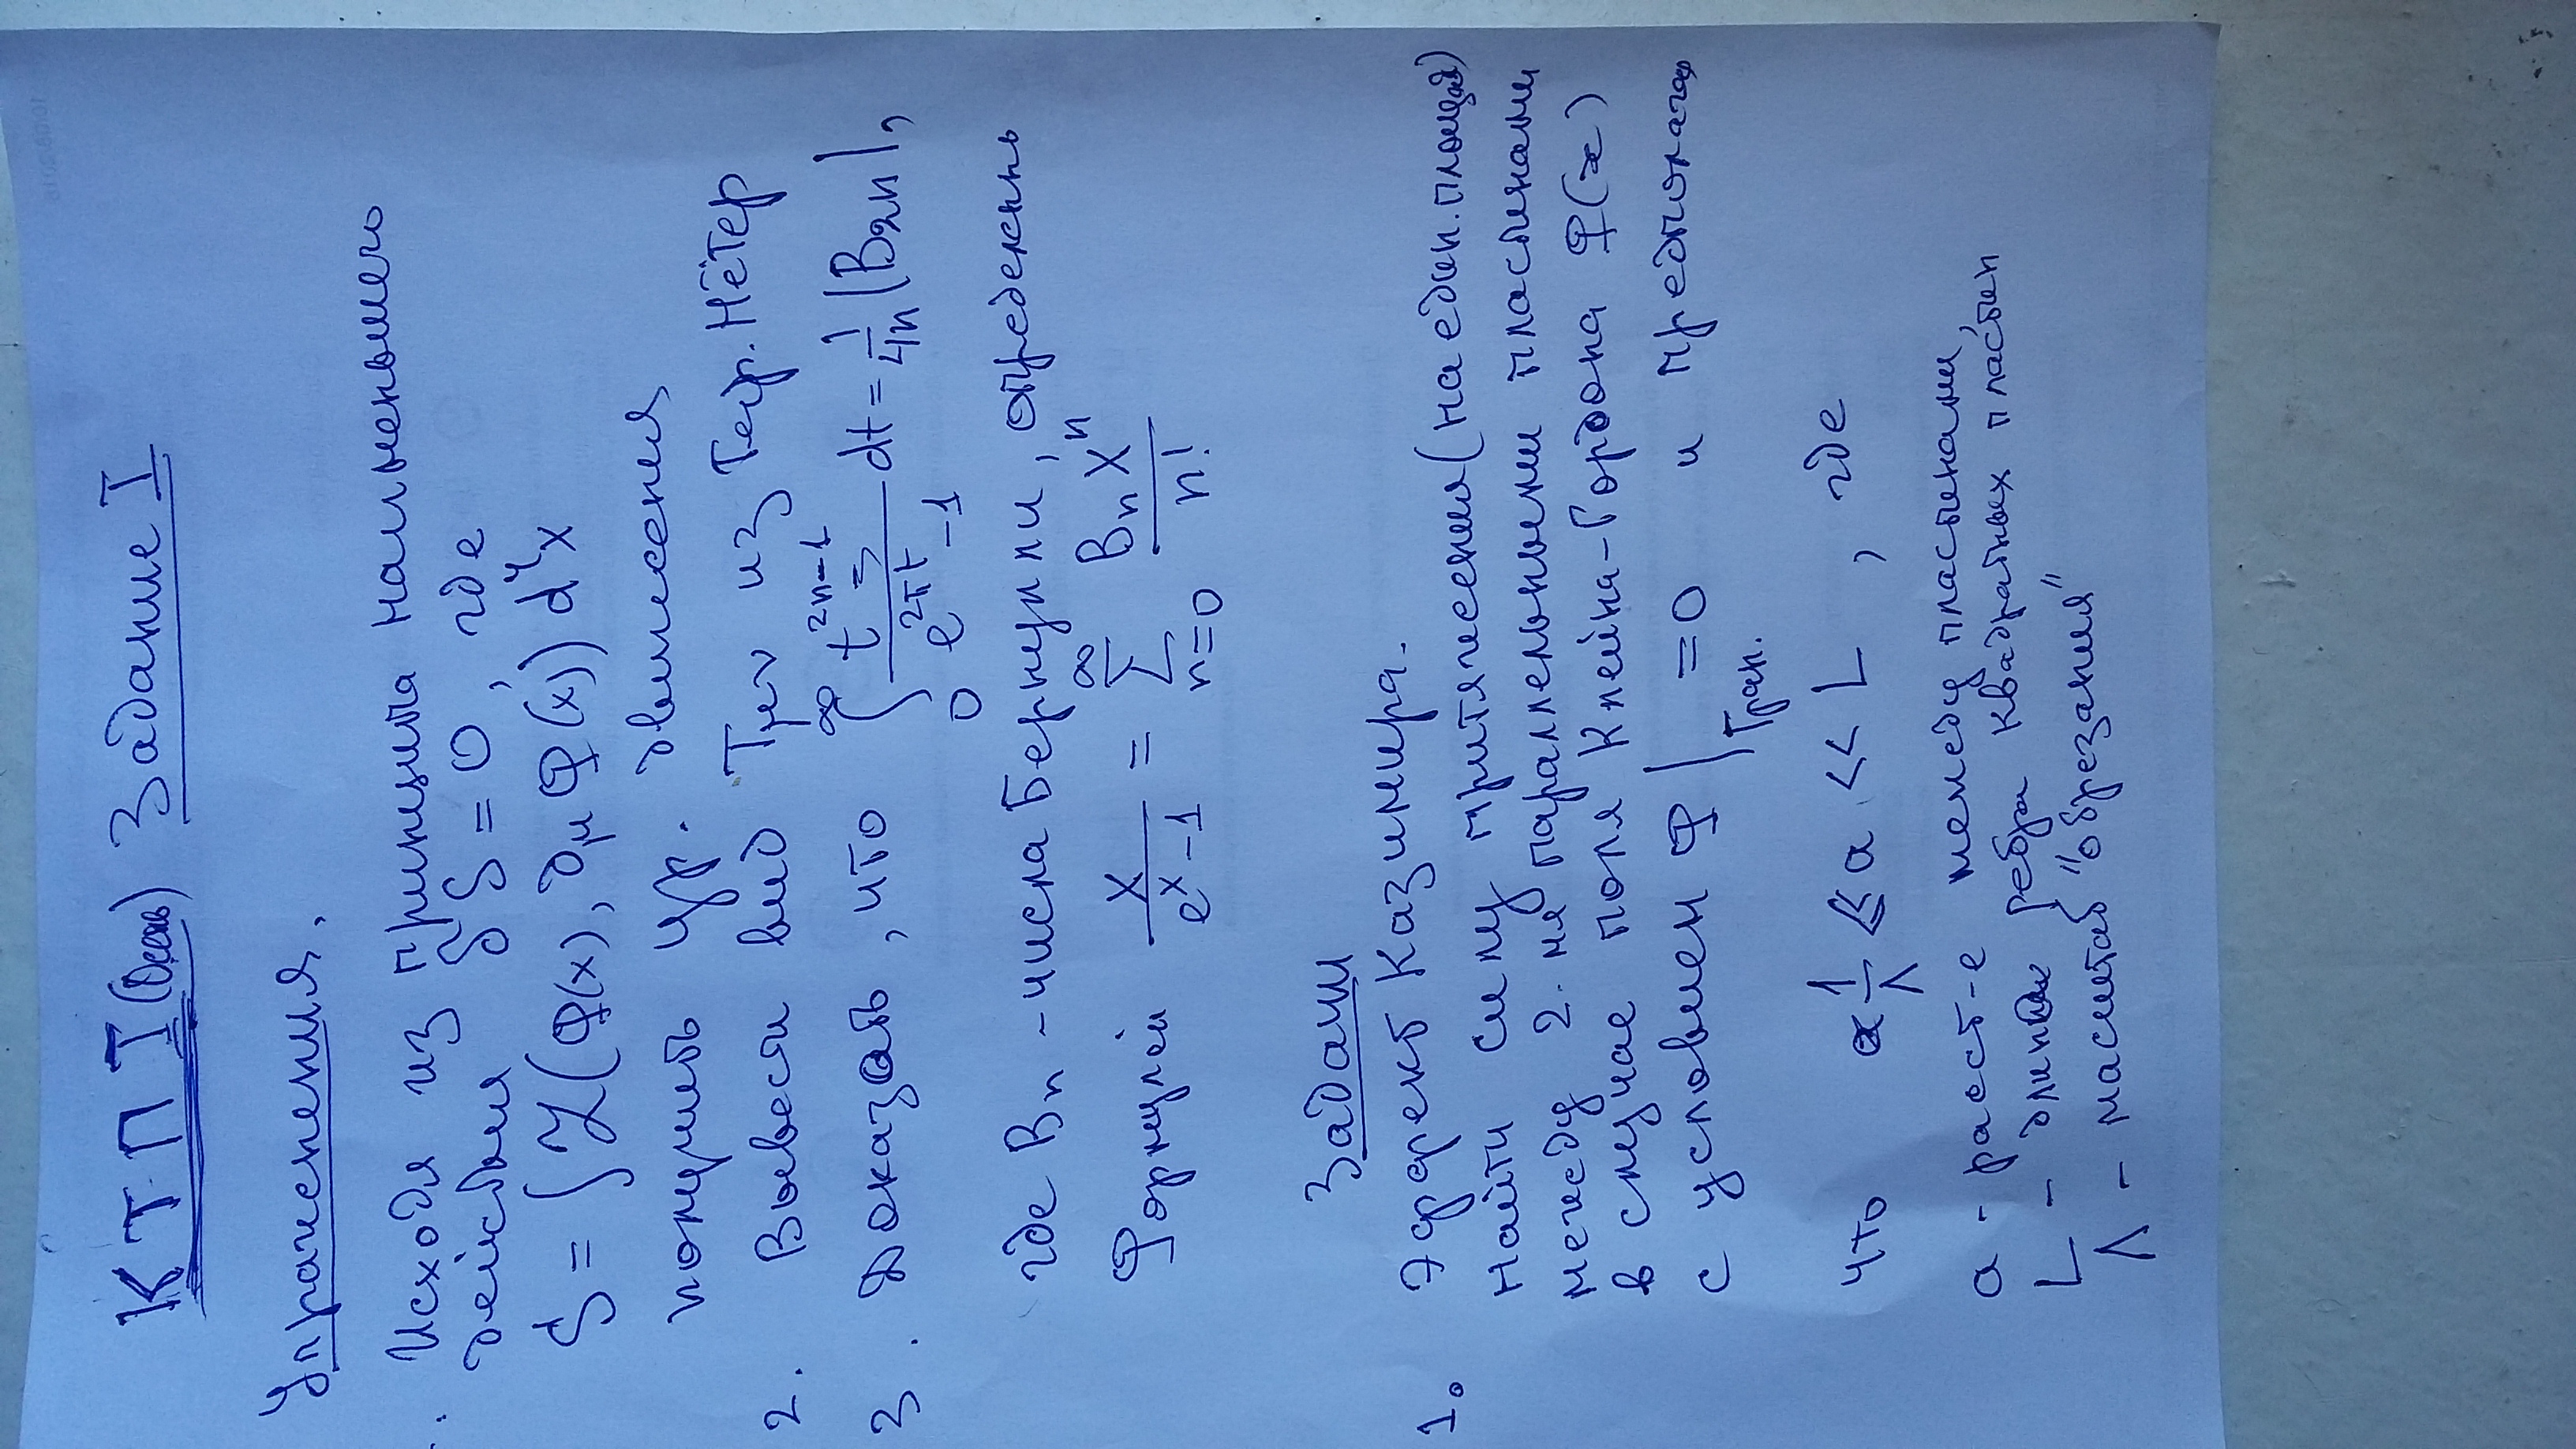 КТП I (Осень) Задание I
Упражнения.
1. Исходя из принципа наименьшего
действия δS = 0, где
S = ∫ ℒ(φ(x), ∂μ φ(x)) d⁴x
получить ур. движения
2. Вывести вид Tμν из Теор. Нётер
3. Доказать, что ∫₀^∞ t^(2n-1) / (e^(2πt) - 1) dt = 1/(4n) |B₂ₙ|,
где Bₙ - числа Бернулли, определены
Формулой x / (eˣ - 1) = Σ_(n=0)^∞ Bₙ xⁿ / n!
Задачи
1. Эффект Казимира.
Найти силу притяжения (на един. площади)
между 2-мя параллельными пластинами
в случае поля Клейна-Гордона φ(x)
с условием φ|Гран. = 0 и предполагая
что 1/Λ ≪ a << L, где
a - расст-е между пластинами,
L - длина ребра квадратных пластин
Λ - масштаб "обрезания"